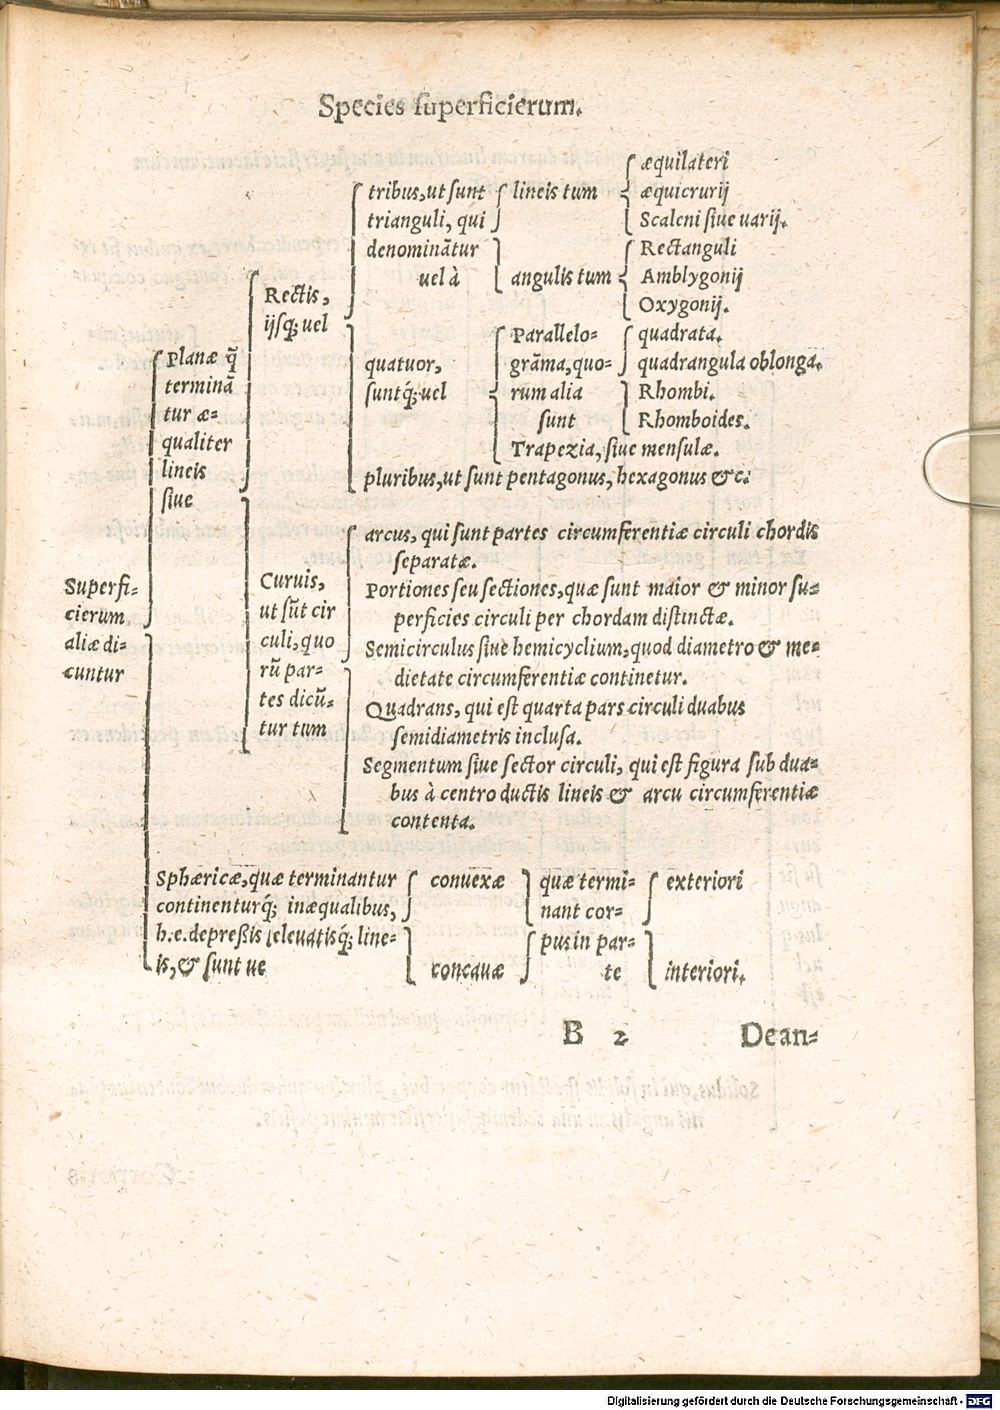 Species superficierum.
Superfi-
cierum
aliæ di-
cuntur
Planæ q̃
terminã
tur æ-
qualiter
lineis
siue
Rectis,
ijsq; uel
tribus, ut sunt
trianguli, qui
denominãtur
uel à
lineis tum
æquilateri
æquicrurij
Scaleni siue uarij.
angulis tum
Rectanguli
Amblygonij
Oxygonij.
quatuor,
suntq; uel
Parallelo-
grãma, quo-
rum alia
sunt
quadrata.
quadrangula oblonga.
Rhombi.
Rhomboides.
Trapezia, siue mensulæ.
pluribus, ut sunt pentagonus, hexagonus &c.
Curuis,
ut sũt cir
culi, quo
rũ par-
tes dicũ-
tur tum
arcus, qui sunt partes circumferentiæ circuli chordis
separatæ.
Portiones seu sectiones, quæ sunt maior & minor su-
perficies circuli per chordam distinctæ.
Semicirculus siue hemicyclium, quod diametro & me-
dietate circumferentiæ continetur.
Quadrans, qui est quarta pars circuli duabus
semidiametris inclusa.
Segmentum siue sector circuli, qui est figura sub dua-
bus à centro ductis lineis & arcu circumferentiæ
contenta.
Sphæricæ, quæ terminantur
continenturq; inæqualibus,
h.e. depreßis eleuatisq; line-
is, & sunt ue
conuexæ
concauæ
quæ termi-
nant cor-
pus in par-
te
exteriori
interiori.
B 2
De an-
Digitalisierung gefördert durch die Deutsche Forschungsgemeinschaft - DFG